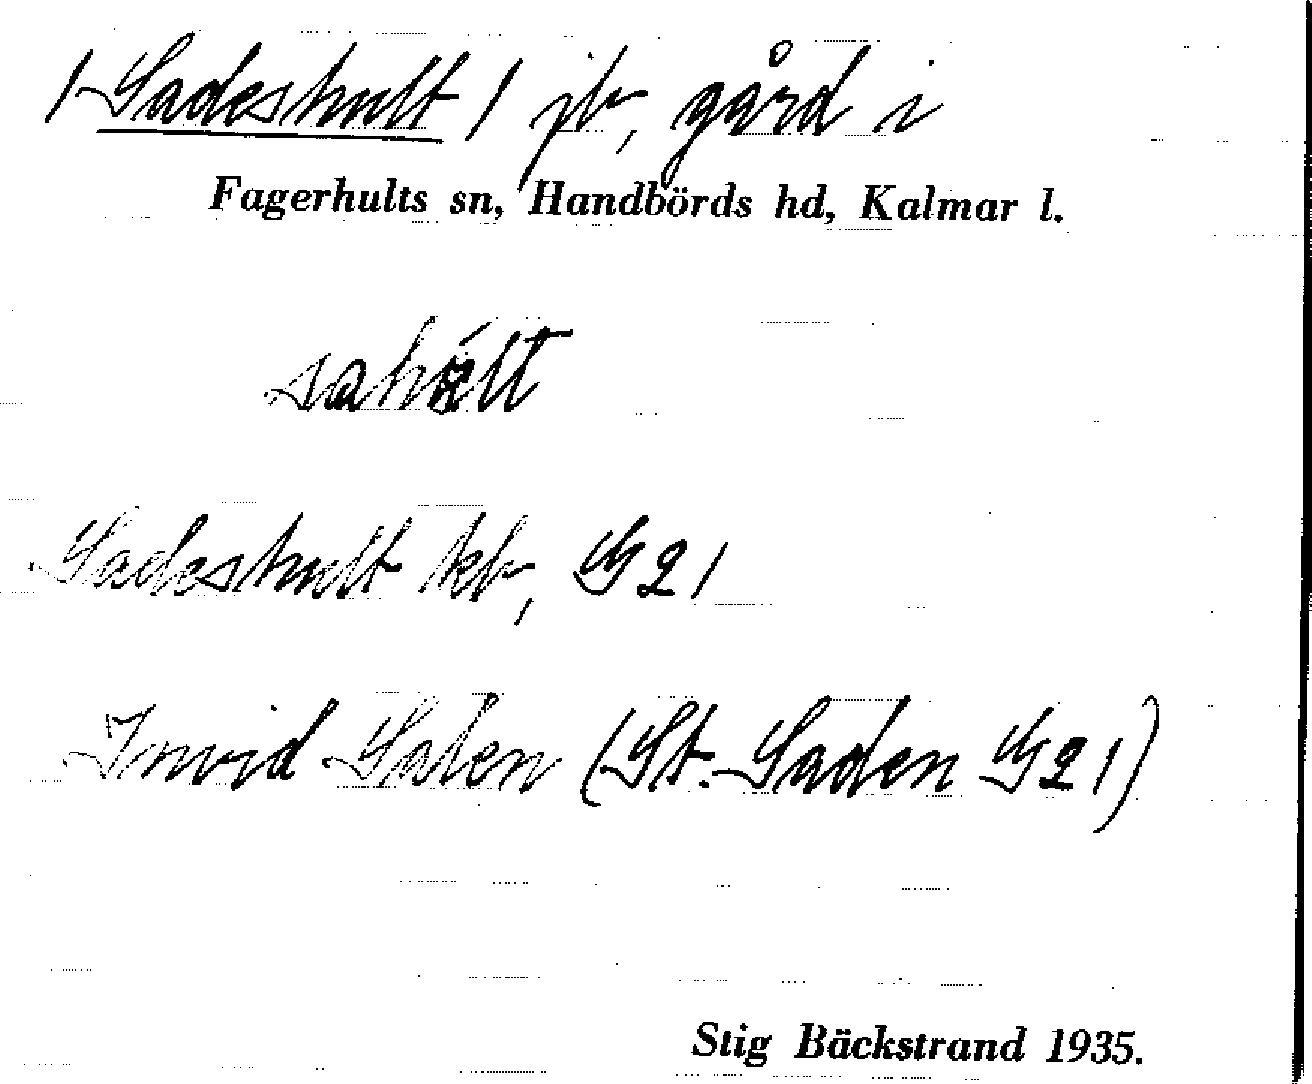 /Sadeshult/ jb, gård i
Fagerhults sn, Handbörds hd, Kalmar l.
Sadeshult kb, G 21
Invid Salen (St. Saden G 21)
Stig Bäckstrand 1935.